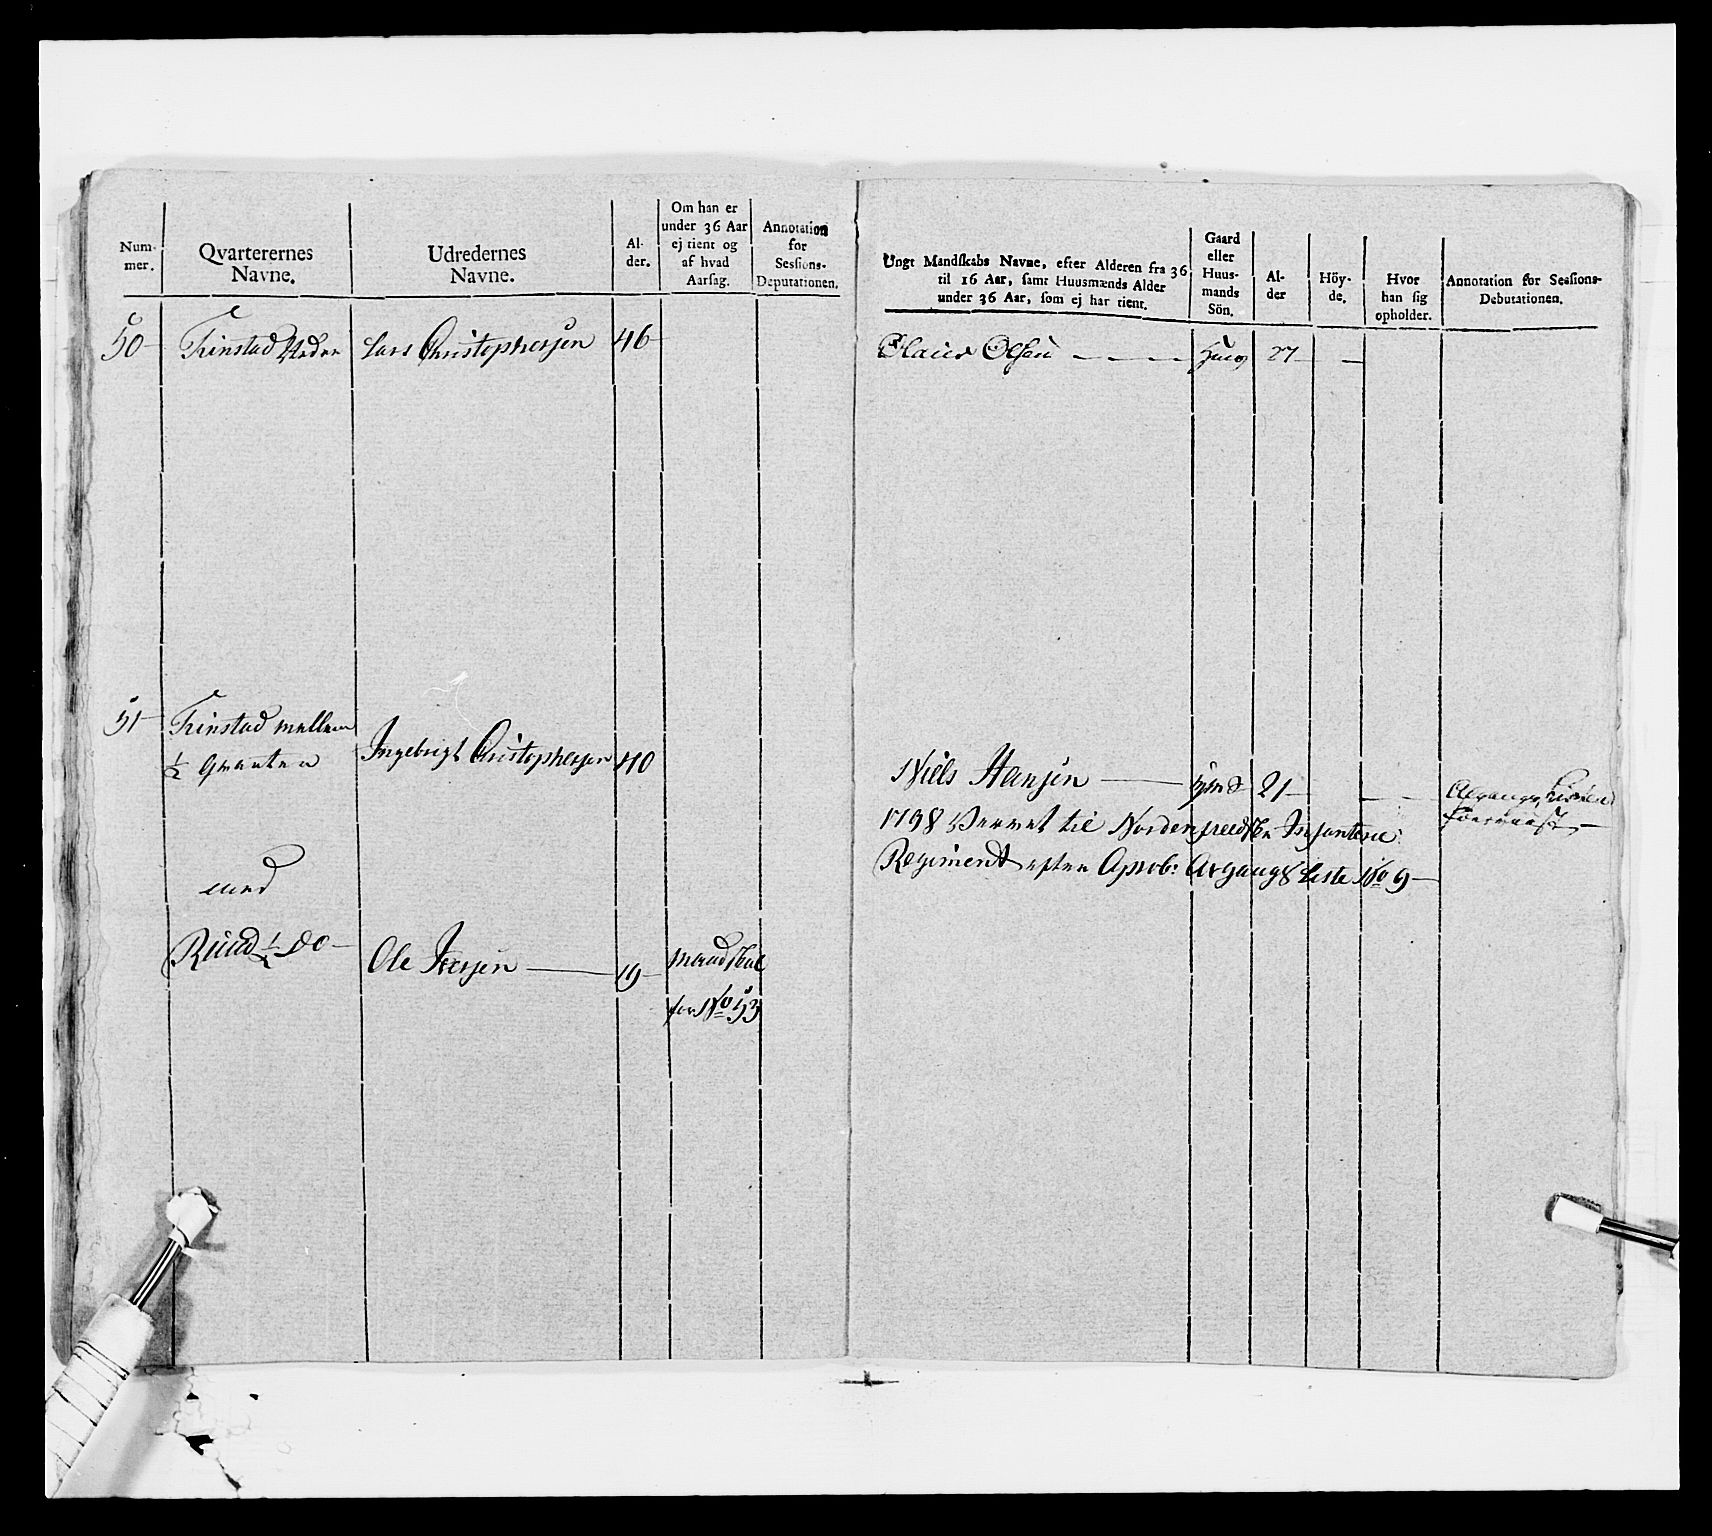 Num-
mer.
Qvarterernes
Navne.
Udredernes
Navne.
Al-
der.
Om han er
under 36 Aar
ej tient og
af hvad
Aarsag.
Annotation
for
Sessions-
Deputationen.
Ungt Mandskabs Navne, efter Alderen fra 36
til 16 Aar, samt Huusmænds Alder
under 36 Aar, som ej har tient.
Gaard
eller
Huus-
mands
Sön.
Al-
der
Höy-
de.
Hvor
han sig
opholder.
Annotation for Sessions-
Debutationen.
50 Finstad Neder Lars Christophersen 46
Olaus Olsen 27
51 Finstad mellem
1/2 Qvarteer Ingebrigt Christophersen 40
Niels Hansen 21
1798 til Nordenfieldske Infanterie
Regiment efter Aprob: Afgangs Liste No 9
med
Ruud 1/2 do Ole Iversen 19 mandskab
for No 53